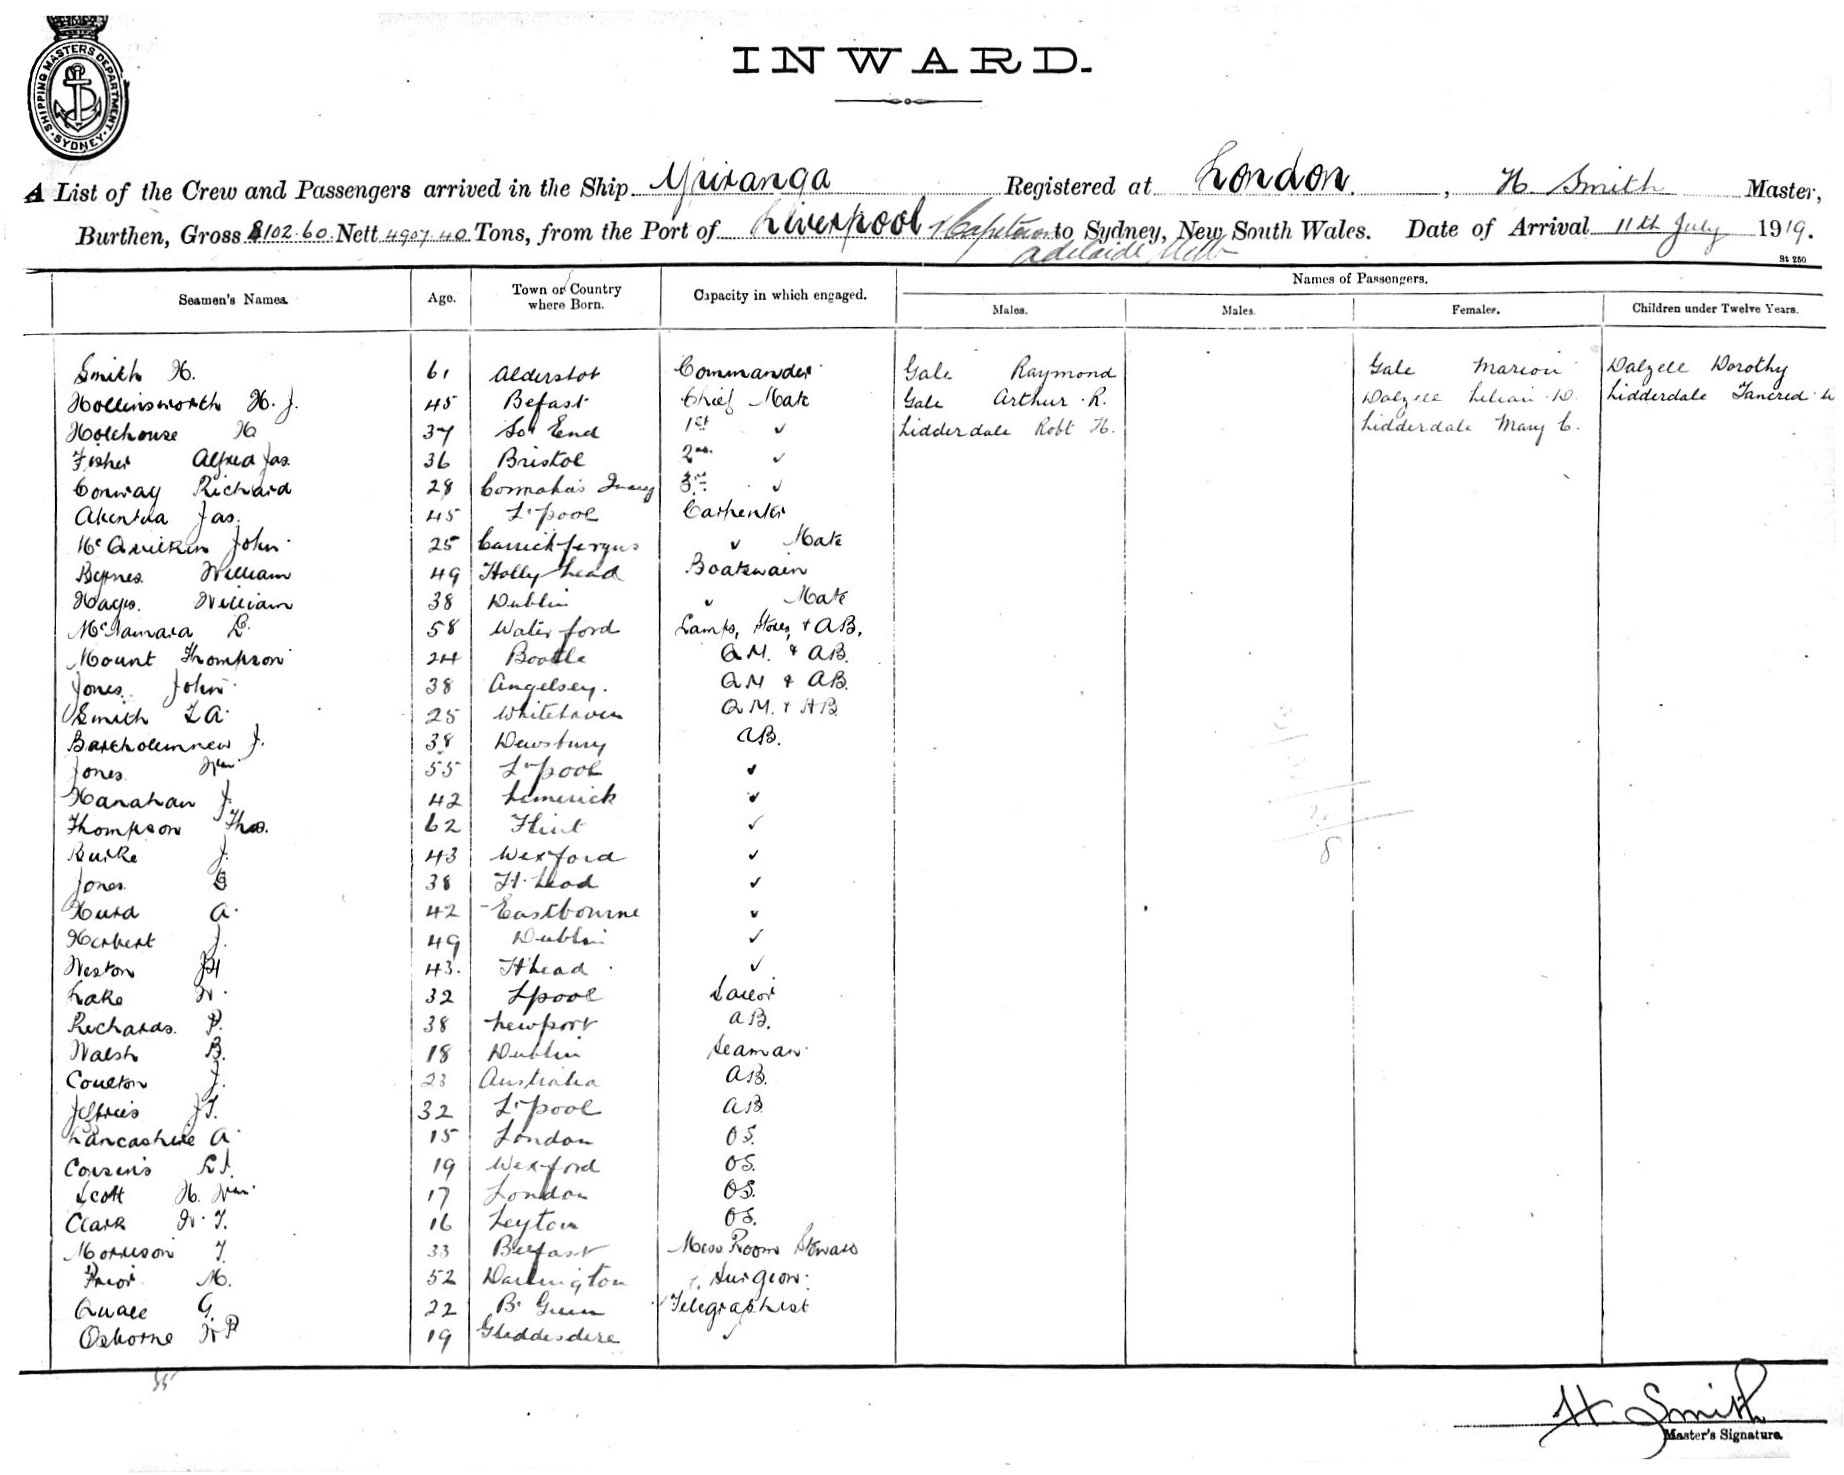 SHIPPING MASTERS DEPARTMENT. SYDNEY
INWARD.
A List of the Crew and Passengers arrived in the Ship Ypiranga Registered at London, H. Smith Master,
Burthen, Gross 8102.60 Nett 4907.40 Tons, from the Port of Liverpool & Capetown to Sydney, New South Wales. Date of Arrival 11th July 1919.
Adelaide Melb
St 250
Seamen's Names. Age. Town or Country where Born. Capacity in which engaged. Names of Passengers.
Males. Males. Females. Children under Twelve Years.
Smith H. 61 Alderstot Commander Gale Raymond Gale Marion Dalzell Dorothy
Hollinsworth H. J. 45 Befast Chief Mate Gale Arthur R. Dalzell Lilian D. Lidderdale Tancred
Holehouse H 37 So' End 1st ✓ Lidderdale Robt H. Lidderdale Mary C.
Fisher Alfred Jas. 36 Bristol 2nd ✓
Conway Richard 28 3rd ✓
Jas. 45 L'pool Carpenter
John 25 Carrickfergus ✓ Mate
Byrnes William 49 Holly head Boatswain
Hays. William 38 Dublin ✓ Mate
McNamara 58 Waterford Lamps, Stores, & AB.
Mount Thompson 24 Bootle QM. & AB.
Jones John 38 Angelsey. QM & AB.
Smith A. 25 Whitehaven QM. & AB
Bartholemnew J. 38 Dewsbury AB.
Jones Wm 55 L'pool ✓
Hanahan J. 42 Limerick ✓
Thompson Thos. 62 Flint ✓
Burke J. 43 Wexford ✓
Jones 38 H. head ✓
Hurd A. 42 Eastbourne ✓
Herbert J. 49 Dublin ✓
Weston 43. H'head ✓
Lake W. 32 Lpool Sailor
Richards. P. 38 Newport AB.
Walsh B. 18 Dublin Seaman
Coulton J. 23 Australia AB.
Jeffries J.T. 32 L'pool AB
Lancashire A. 15 London OS.
Cousins 19 Wexford OS.
Scott H. Wm. 17 London OS.
Clark W. T. 16 Leyton OS.
Morrison T. 33 Belfast Mess Room Steward
Prior M. 52 Darlington Surgeon.
Quale G. 22 B. Green Telegraphist
Osborne W P 19 ✓
3
3
2
8
35
H Smith
Master's Signature.